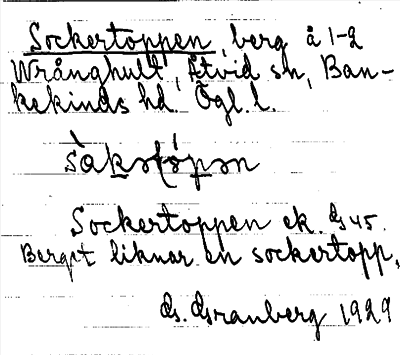 Sockertoppen, berg å 1-2
Wrånghult, Åtvid sn, Ban-
kekinds hd. Ögl. l.
Sockertoppen ek. G 45.
Berget liknar en sockertopp.
G. Granberg 1929